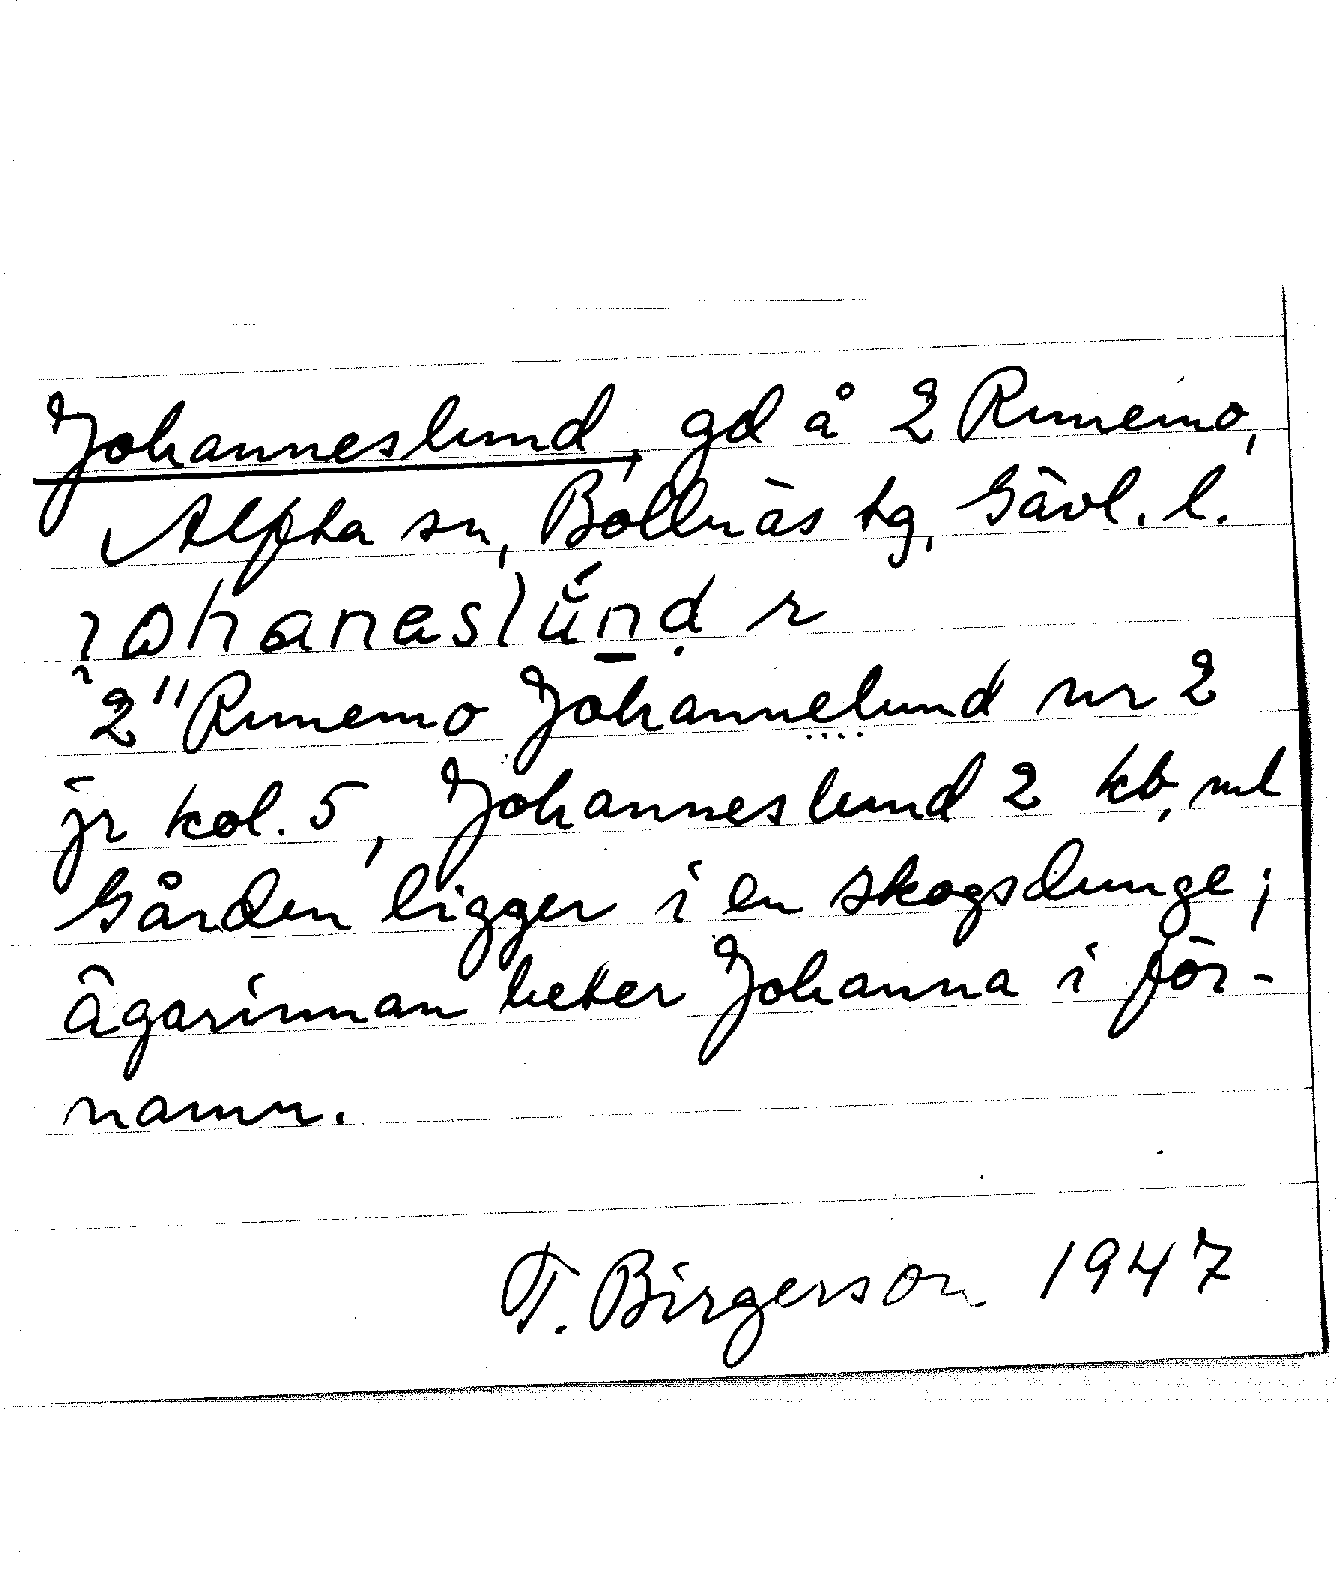 Johanneslund, gd å 2 Runemo,
Alfta sn, Bollnäs tg, Gävl. l.
johaneslúnd r
2" Runemo Johannelund nr 2
jr kol. 5, Johanneslund 2 kb, ml
Gården ligger i en skogsdunge;
ägarinnan heter Johanna i för-
namn.
T. Birgerson 1947